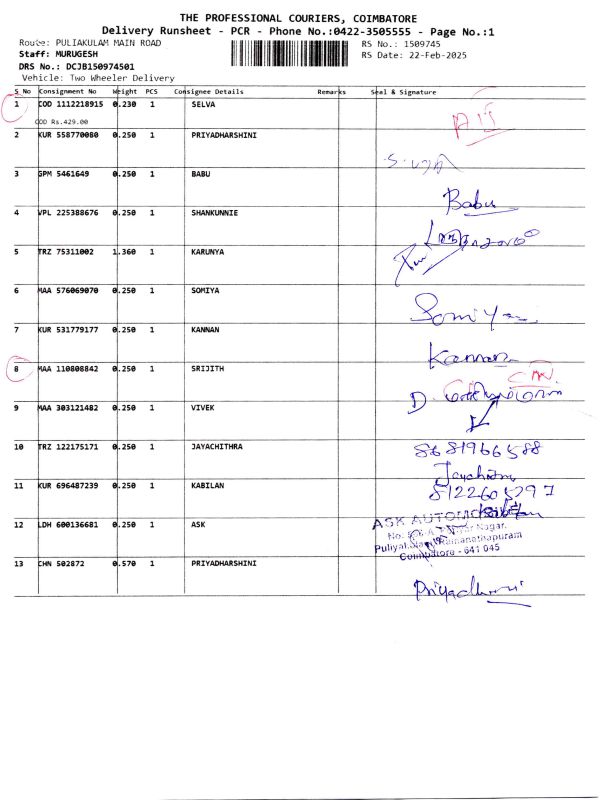 THE PROFESSIONAL COURIERS, COIMBATORE
Delivery Runsheet - PCR - Phone No.:0422-3505555 - Page No.:1
Route: PULIAKULAM MAIN ROAD RS No.: 1509745
Staff: MURUGESH RS Date: 22-Feb-2025
DRS No.: DCJB150974501
Vehicle: Two Wheeler Delivery
S No Consignment No Weight PCS Consignee Details Remarks Seal & Signature
1 COD 1112218915 0.230 1 SELVA
COD Rs.429.00
2 KUR 558770080 0.250 1 PRIYADHARSHINI
3 GPM 5461649 0.250 1 BABU Babu
4 VPL 225388676 0.250 1 SHANKUNNIE
5 TRZ 75311002 1.360 1 KARUNYA
6 MAA 576069070 0.250 1 SOMIYA Somiya
7 KUR 531779177 0.250 1 KANNAN Kannan
8 MAA 110808842 0.250 1 SRIJITH
9 MAA 303121482 0.250 1 VIVEK
10 TRZ 122175171 0.250 1 JAYACHITHRA 8681966588
Jayachitra
11 KUR 696487239 0.250 1 KABILAN 8122605297
12 LDH 600136681 0.250 1 ASK ASK AUTOMOTIVE
Puliyakulam, Ramanathapuram
Coimbatore - 641 045
13 CHN 502872 0.570 1 PRIYADHARSHINI Priyadharsini